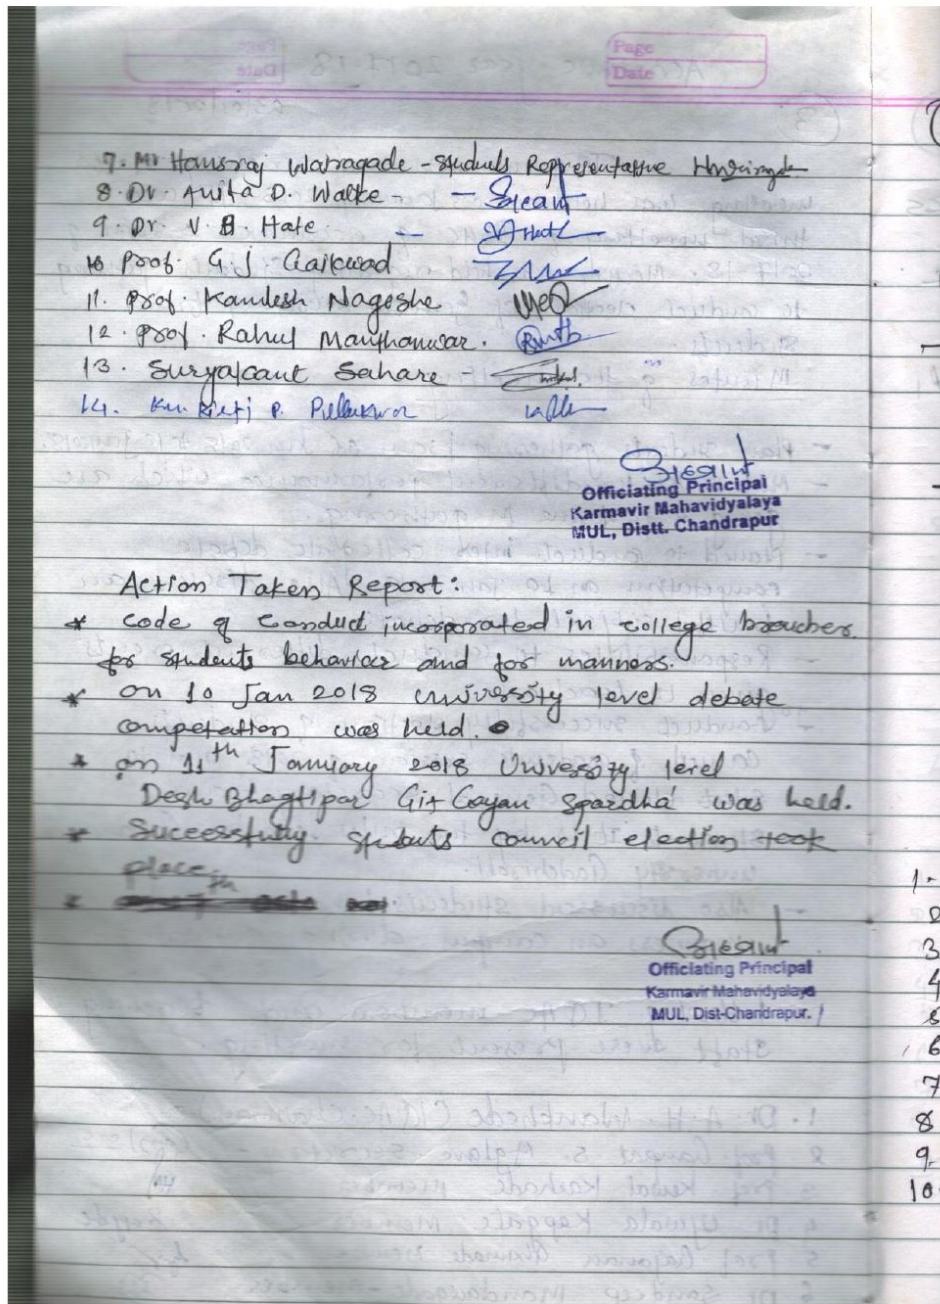 Page
Date
7. Mr Hansraj Waragade - Students Representative
8. Dr. Anita D. Walke -
9. Dr. V. B. Hate -
10 Prof. G. J Gaikwad
11. Prof. Kamlesh Nagoshe
12. Prof. Rahul Manthanwar.
13. Suryakant Sahare
14. Ku. P.
Officiating Principal
Karmavir Mahavidyalaya
MUL, Distt. Chandrapur
Action Taken Report:
* code of conduct incorporated in college broucher
for students behaviour and for manners.
* on 10 Jan 2018 university level debate
competation was held.
* on 11th January 2018 University level
Desh Bhagtipar Git Gayan Spardha was held.
* Successfully students council election took
place
*
Officiating Principal
Karmavir Mahavidyalaya
MUL, Dist-Chandrapur.
1.
2
3
4
5
6
7
8
9.
10